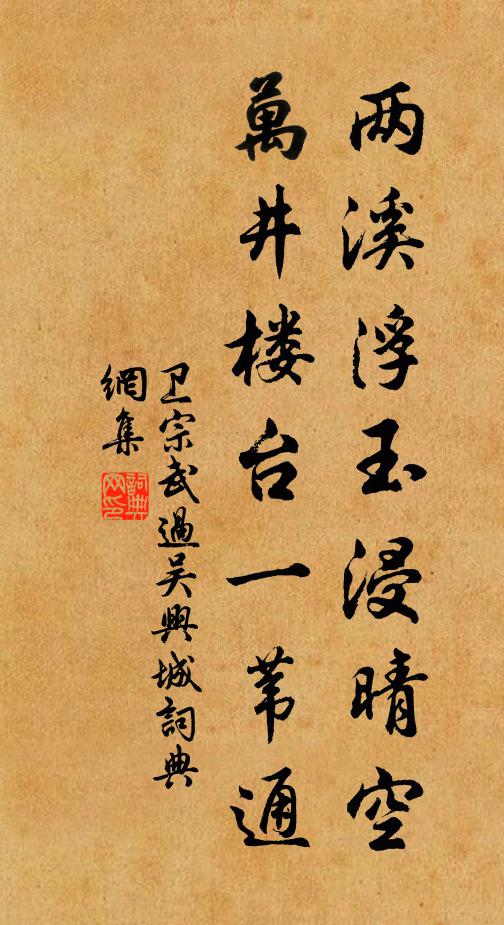 两溪浮玉浸晴空
萬井楼台一苇通
卫宗武過吴興城詞典
網集
詞典
网印